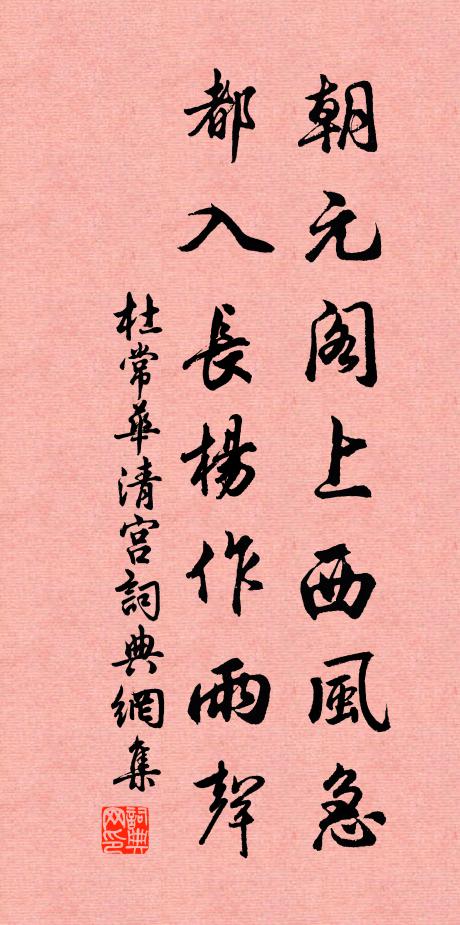 朝元阁上西風急
都入長楊作雨聲
杜常華清宫詞典網集
詞典網印